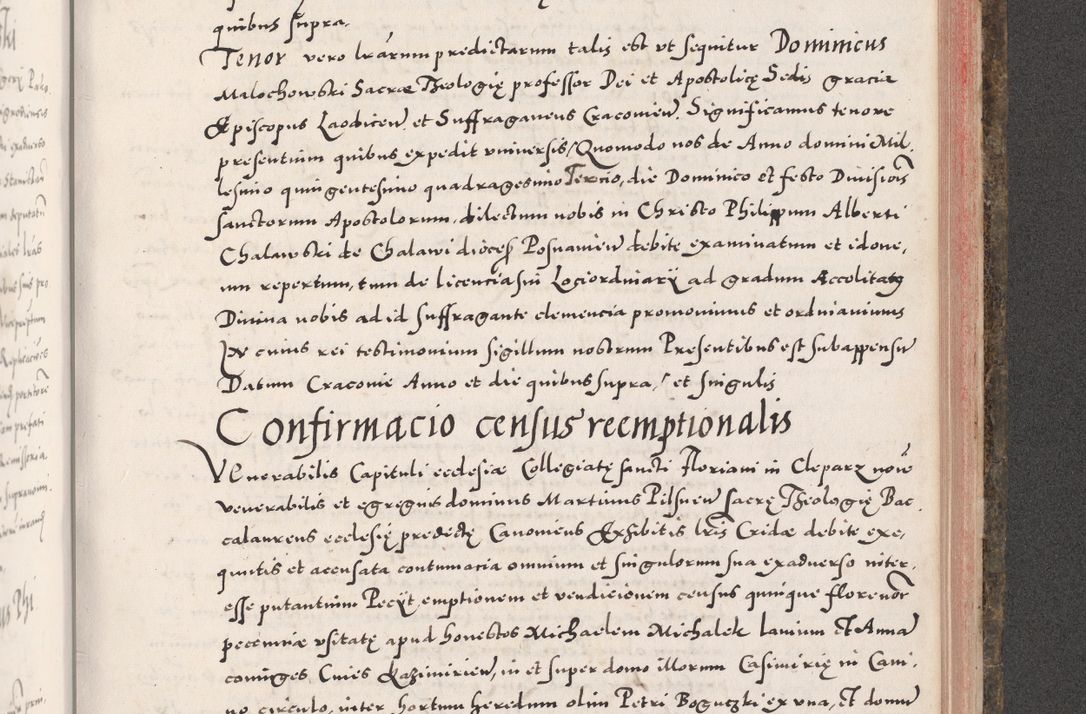 quibus supra.
Tenor vero lrarum predictarum talis est vt sequitur Dominicus
Malochowski Sacræ Theologię professor Dei et Apostolicę Sedis gracia
Episcopus Laodicen et Suffraganeus Cracovien Significamus tenore
presentium quibus expedit vniversis Quomodo nos de Anno domini Mil,
lesimo quingentesimo quadragesimo Tercio, die Dominico et festo Divisiois
Sanctorum Apostolorum, dilectum nobis in Christo Philippum Alberti
Chalawski de Chalawi dioces Posnanien debite examinatum et idone,
um repertum, tum de licencia sui Lociordinarij ad gradum Accolitatg
Divina nobis ad id suffragante clemencia promovimus et ordinavimus
In cuius rei testimonium sigillum nostrum Presentibus est subappensu
Datum Cracovie Anno et die quibus supra / et singulis
Confirmacio census reemptionalis
VEnerabilis Capituli ecclesiæ Collegiatę sancti Floriani in Cleparz noie
venerabilis et egregius dominus Martinus Pilsnen sacrę Theologię Bac
calaureus ecclesię predictę Canonicus Exhibitis lris Cridæ debite exe,
quutis et accusata contumacia omnium et singulorum sua exadverso inter,
esse putantium Pecijt, emptionem et vendicionem census quinque florenor
pecuniæ vsitatę apud honestos Michaelem Michalek lanium Et Anna
coniuges Cives Kazimirien, in et super domo illorum Casimirię in Cani,
no circulo, inter hortum heredum olim Petri Boguczki ex vna, Et domu